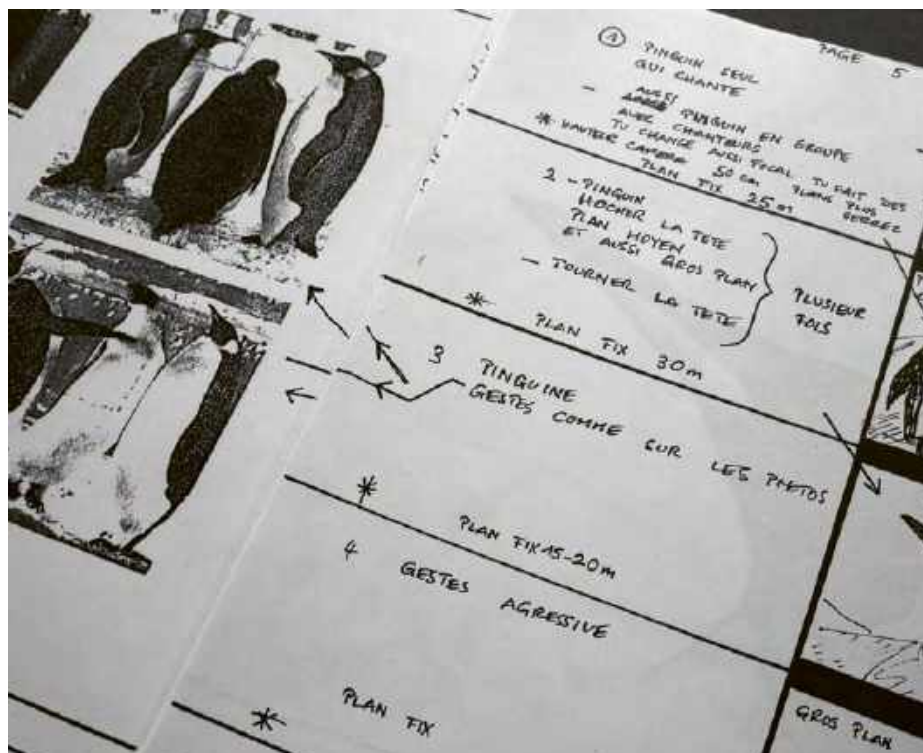 PAGE 5
① PINGUIN SEUL
QUI CHANTE
- AUSSI PINGUIN EN GROUPE
AVEC CHANTEURS
TU CHANGE AUSSI FOCAL TU FAIT DES
* HAUTEUR CAMERA 50 cm PLANS PLUS SERREZ
PLAN FIX 25 m
2 - PINGUIN
HOCHER LA TETE
PLAN MOYEN
ET AUSSI GROS PLAN
- TOURNER LA TETE
PLUSIEUR
FOIS
* PLAN FIX 30 m
3 PINGUINE
GESTES COMME SUR LES PHOTOS
* PLAN FIX 15-20 m
4 GESTES AGRESSIVE
* PLAN FIX
GROS PLAN